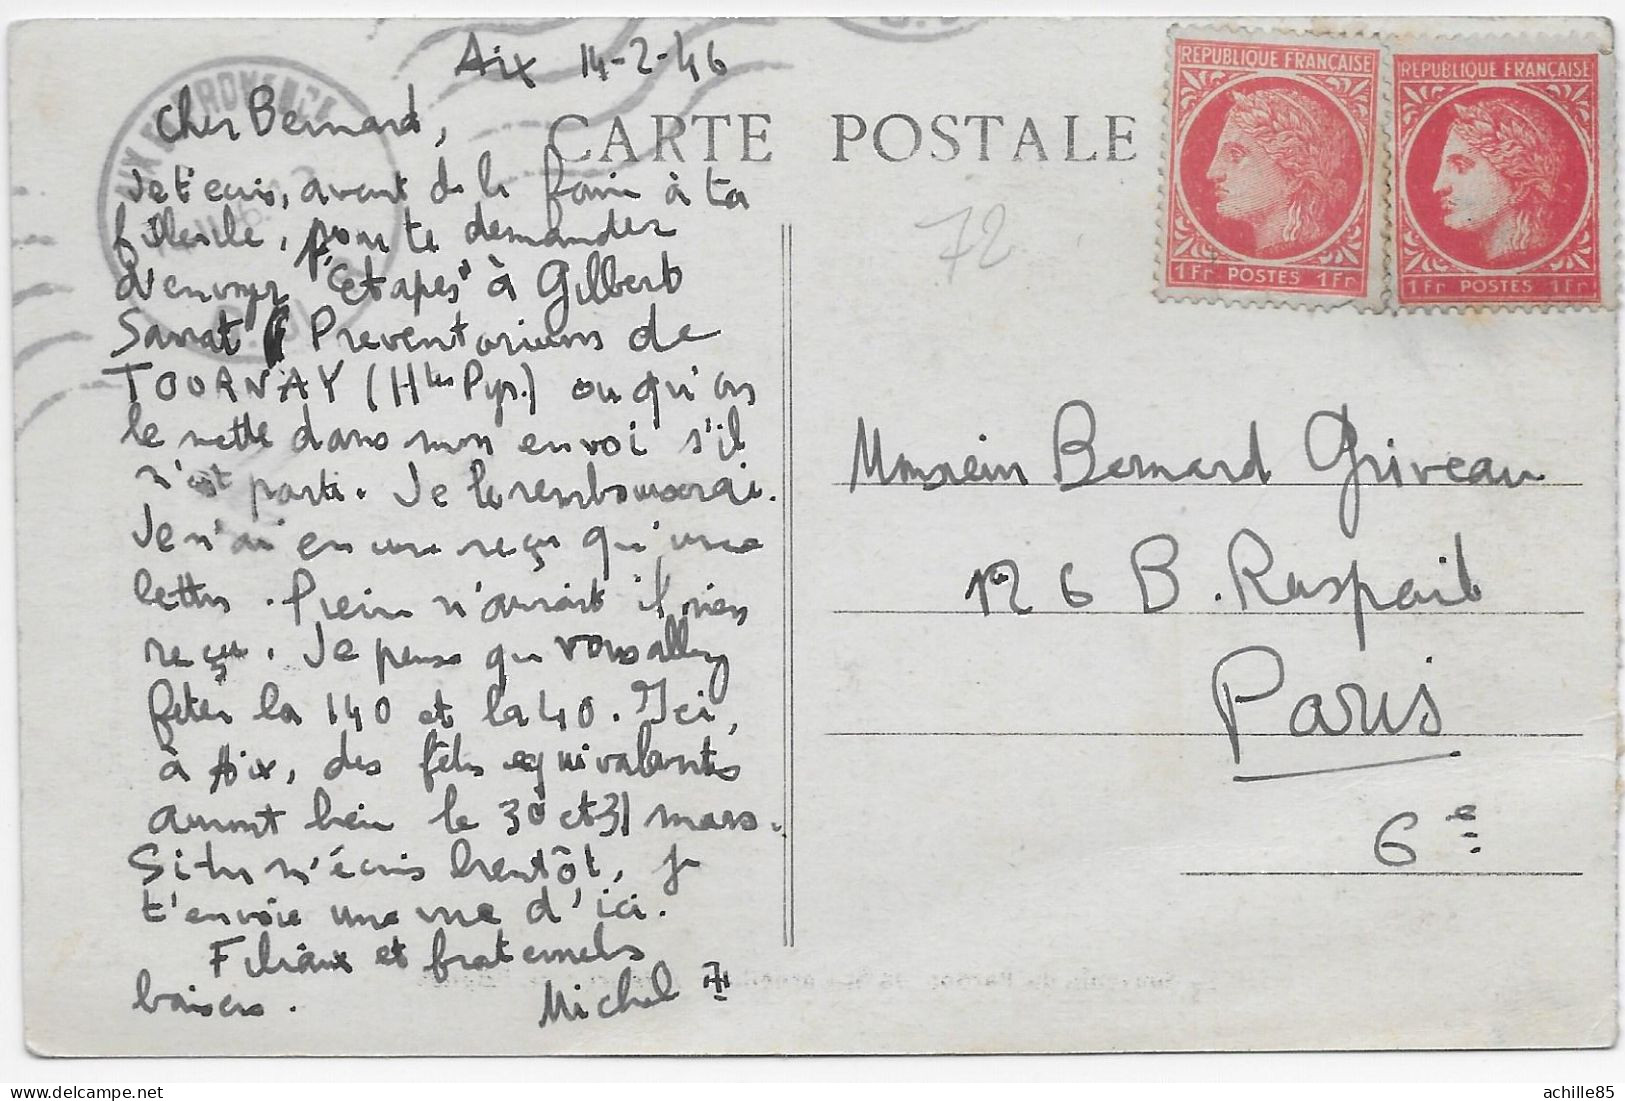 Aix 14-2-46
CARTE POSTALE
REPUBLIQUE FRANÇAISE
1Fr POSTES 1Fr
REPUBLIQUE FRANÇAISE
1Fr POSTES 1Fr
72
Cher Bernard,
Je t'écris, avant de le faire à ta
filleule, pour te demander
d'envoyer "Etapes" à Gilbert
Sarrat Preventorium de
TOURNAY (Htes Pyr.) ou qu'on
le mette dans mon envoi s'il
n'est parti. Je le rembourserai.
Je n'ai encore reçu qu'une
lettre. n'aurait il rien
reçu. Je pense que vous allez
fêter la 140 et la 40. Ici,
à Aix, des fêtes equivalentes
auront lieu le 30 et 31 mars.
Si tu m'écris bientôt, je
t'envoie une vue d'ici.
Filiaux et fraternels
baisers. Michel
Monsieur Bernard Griveau
126 B. Raspail
Paris
6e
achille85